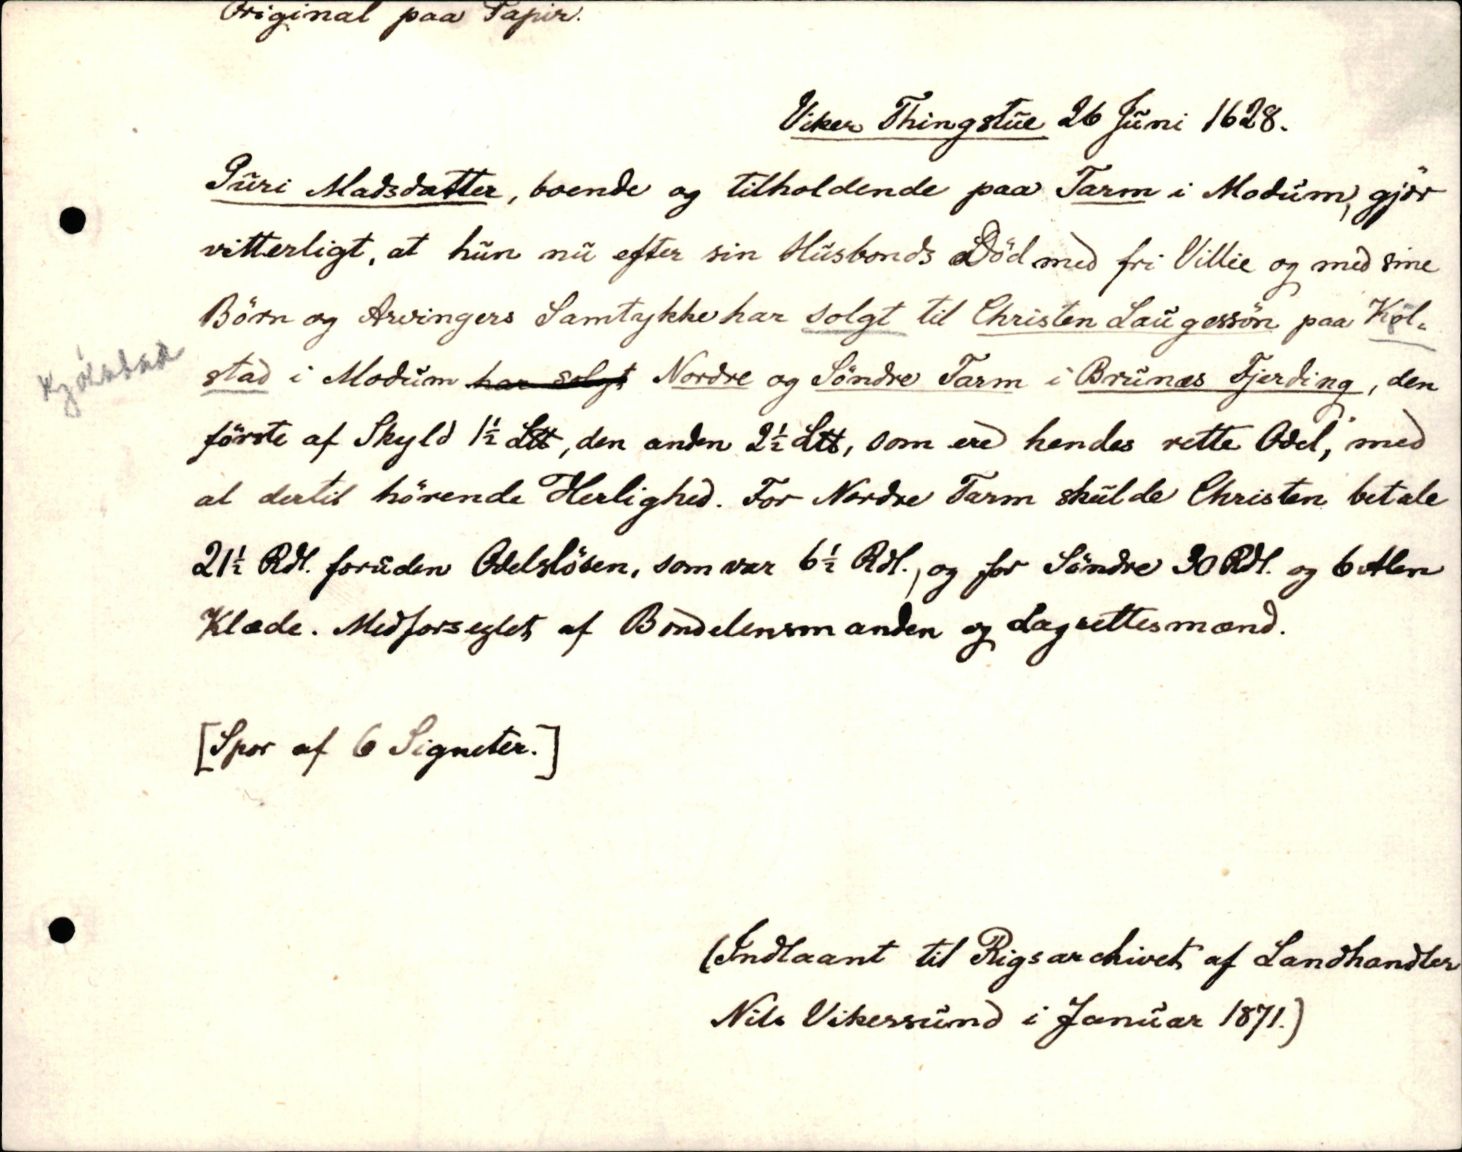 Original paa Papir.
Viker Thingstue 26 Juni 1628.
Guri Madsdatter, boende og tilholdende paa Tarm i Modum, gjör
vitterligt, at hun nu efter sin Husbonds Död med fri Villie og med sine
Börn og Arvingers Samtykke har solgt til Christen Laugessön paa Köl-
stad i Modum har solgt Nordre og Söndre Tarm i Brunæs Fjerding, den
Kjölstad
förste af Skyld 1½ L℔, den anden 2½ L℔, som ere hendes rette Odel, med
al dertil hörende Herlighed. For Nordre Tarm skulde Christen betale
21½ Rdl. foruden Odelslösen, som var 6½ Rdl., og for Söndre 30 Rdl. og 6 Alen
Klæde. Medforseglet af Bondelensmanden og Lagrettesmænd.
[Spor af 6 Signeter.]
(Indlaant til Rigsarchivet af Landhandler
Nils Vikersund i Januar 1871.)